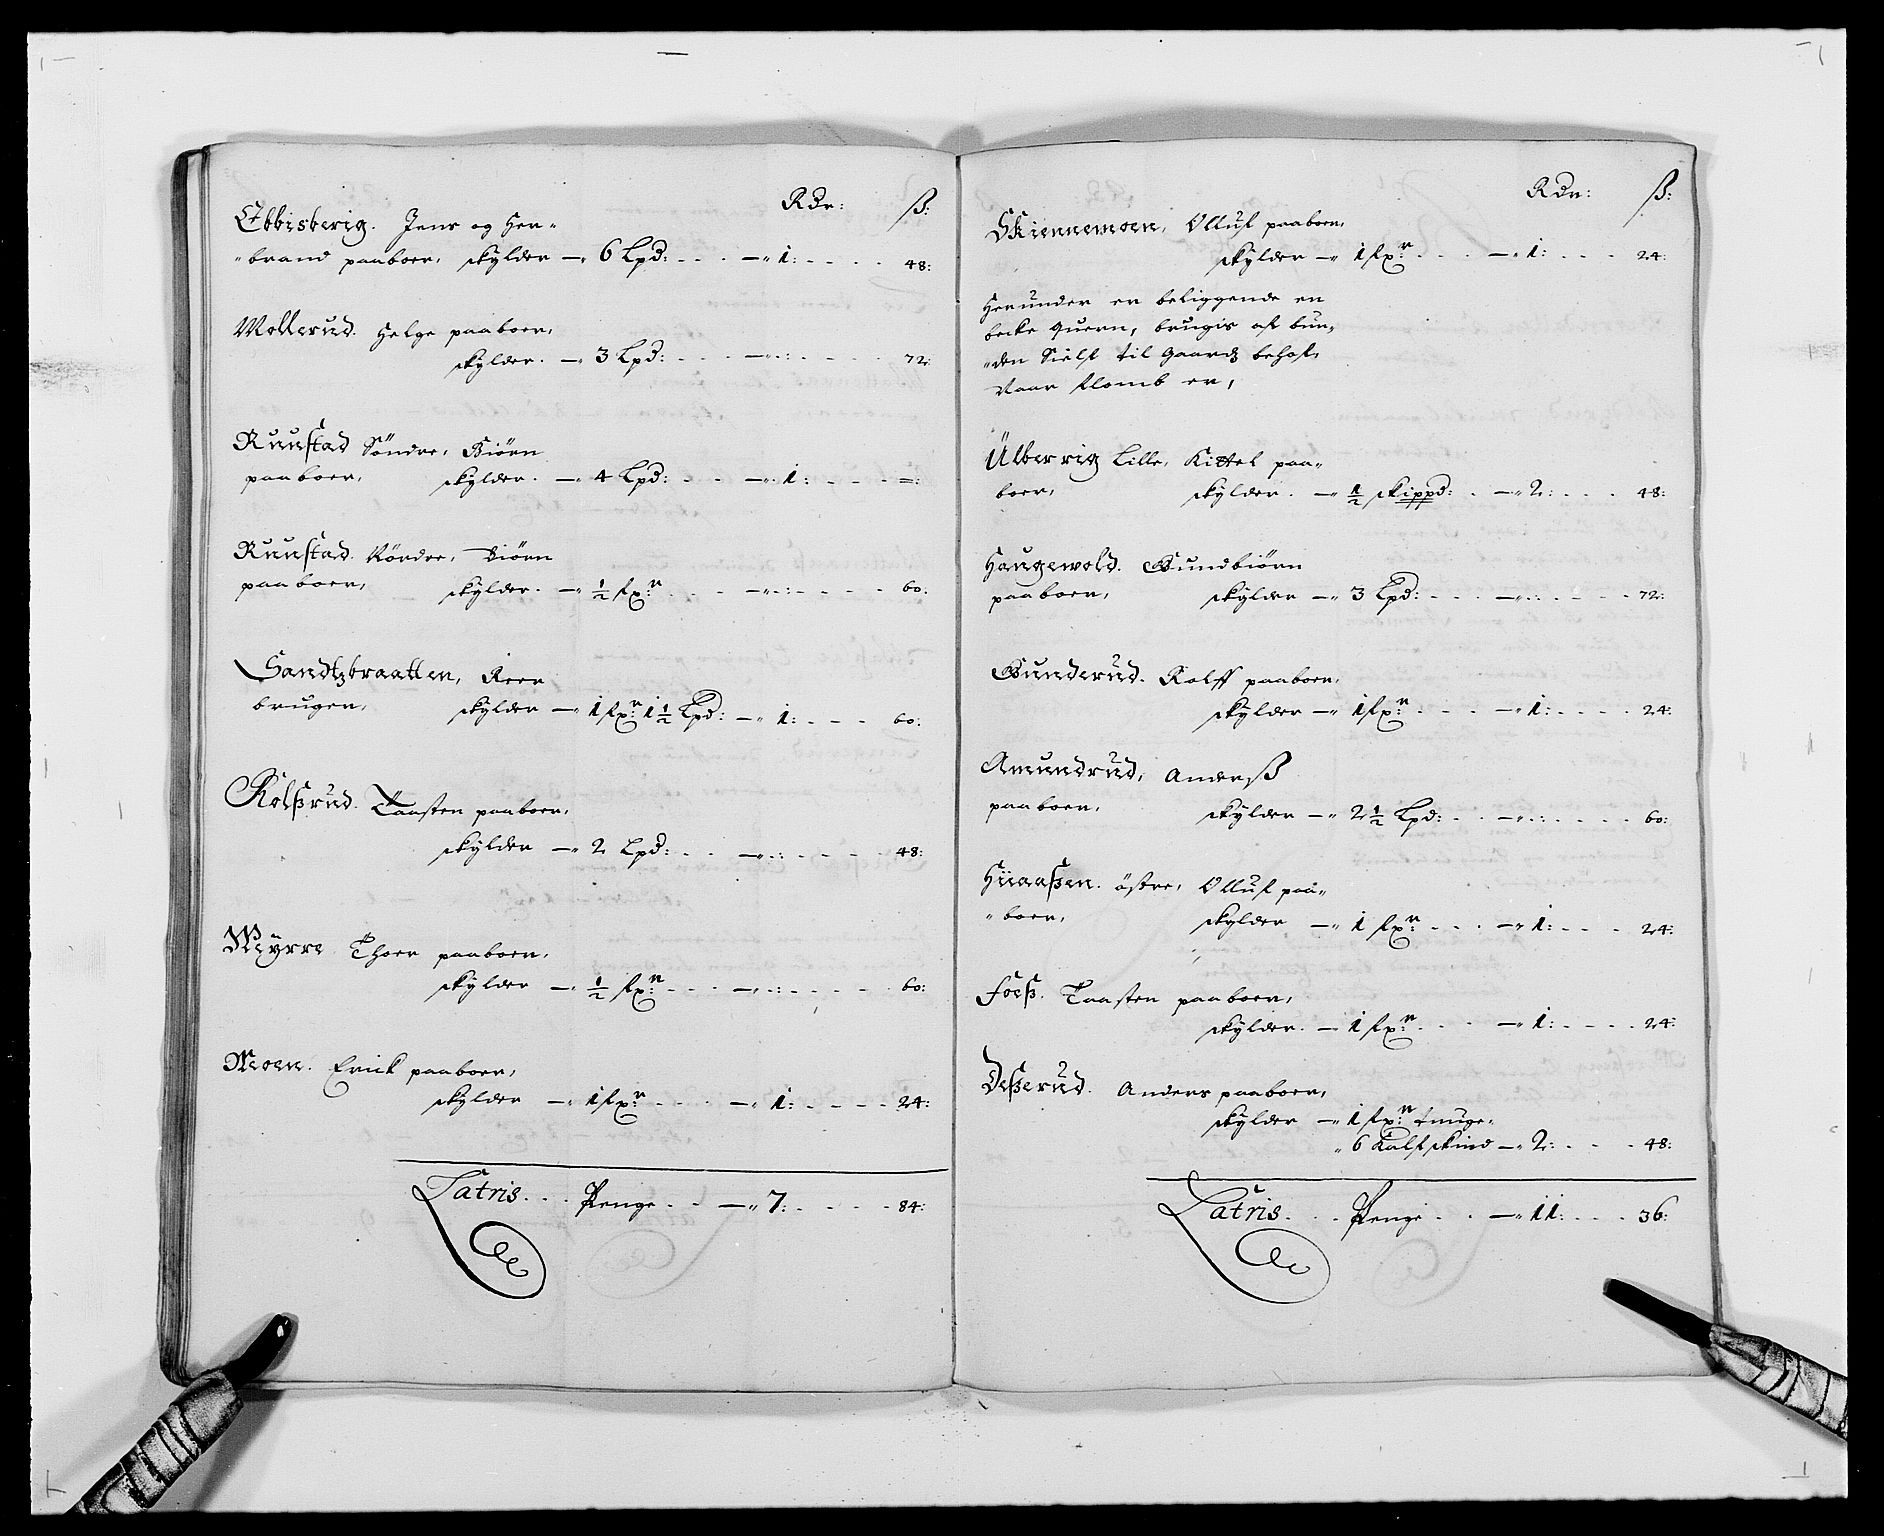 Rdr: ß:
Ebbisberig. Jens og Her-
-brand paaboer, skylder — 6 Lpd: — 1: 48:
Mollerud. Helge paaboer,
skylder. — 3 Lpd: — 72:
Ruustad Söndre, Biörn
paaboer, skylder. — 4 Lpd: — 1: —:
Ruustad. Nördre, Biörn
paaboer, skylder. — ½ fxr: — 60:
Sandtzbraatten, Peer
bruger, skylder — 1 fxr: 1½ Lpd: — 1: 60:
Rolßrud. Taasten paaboer,
skylder — 2 Lpd: — 48:
Myrre Thoer paaboer,
skylder — ½ fxr: — 60:
Moen. Erick paaboer,
skylder — 1 fxr: — 1: 24:
Latris Penge — 7: 84:
Rdr: ß:
Skiennemoen, Olluf paaboer,
skylder — 1 fxr: — 1: 24:
Herunder er beliggende en
becke Quern, brugis af bun-
-den Sielf til Gaardz behof,
Naar flomb er,
Ülberrig Lille, Kittel paa-
boer, skylder. — ½ skippd: — 2: 48:
Haugewold. Gundbiörn
paaboer, skylder — 3 Lpd: — 72:
Gunderud. Rolff paaboer,
skylder — 1 fxr: — 1: 24:
Amundrud, Anderß
paaboer, skylder — 2½ Lpd: — 60:
Hiiaaßen. östre, Olluf paa-
-boer, skylder — 1 fxr: — 1: 24:
Foeß. Taasten paaboer,
skylder. — 1 fxr: — 1: 24:
Deßerud. Anders paaboer,
skylder — 1 fxr: tunge,
6 Kalfskind — 2: 48:
Latris. Penge — 11: 36: